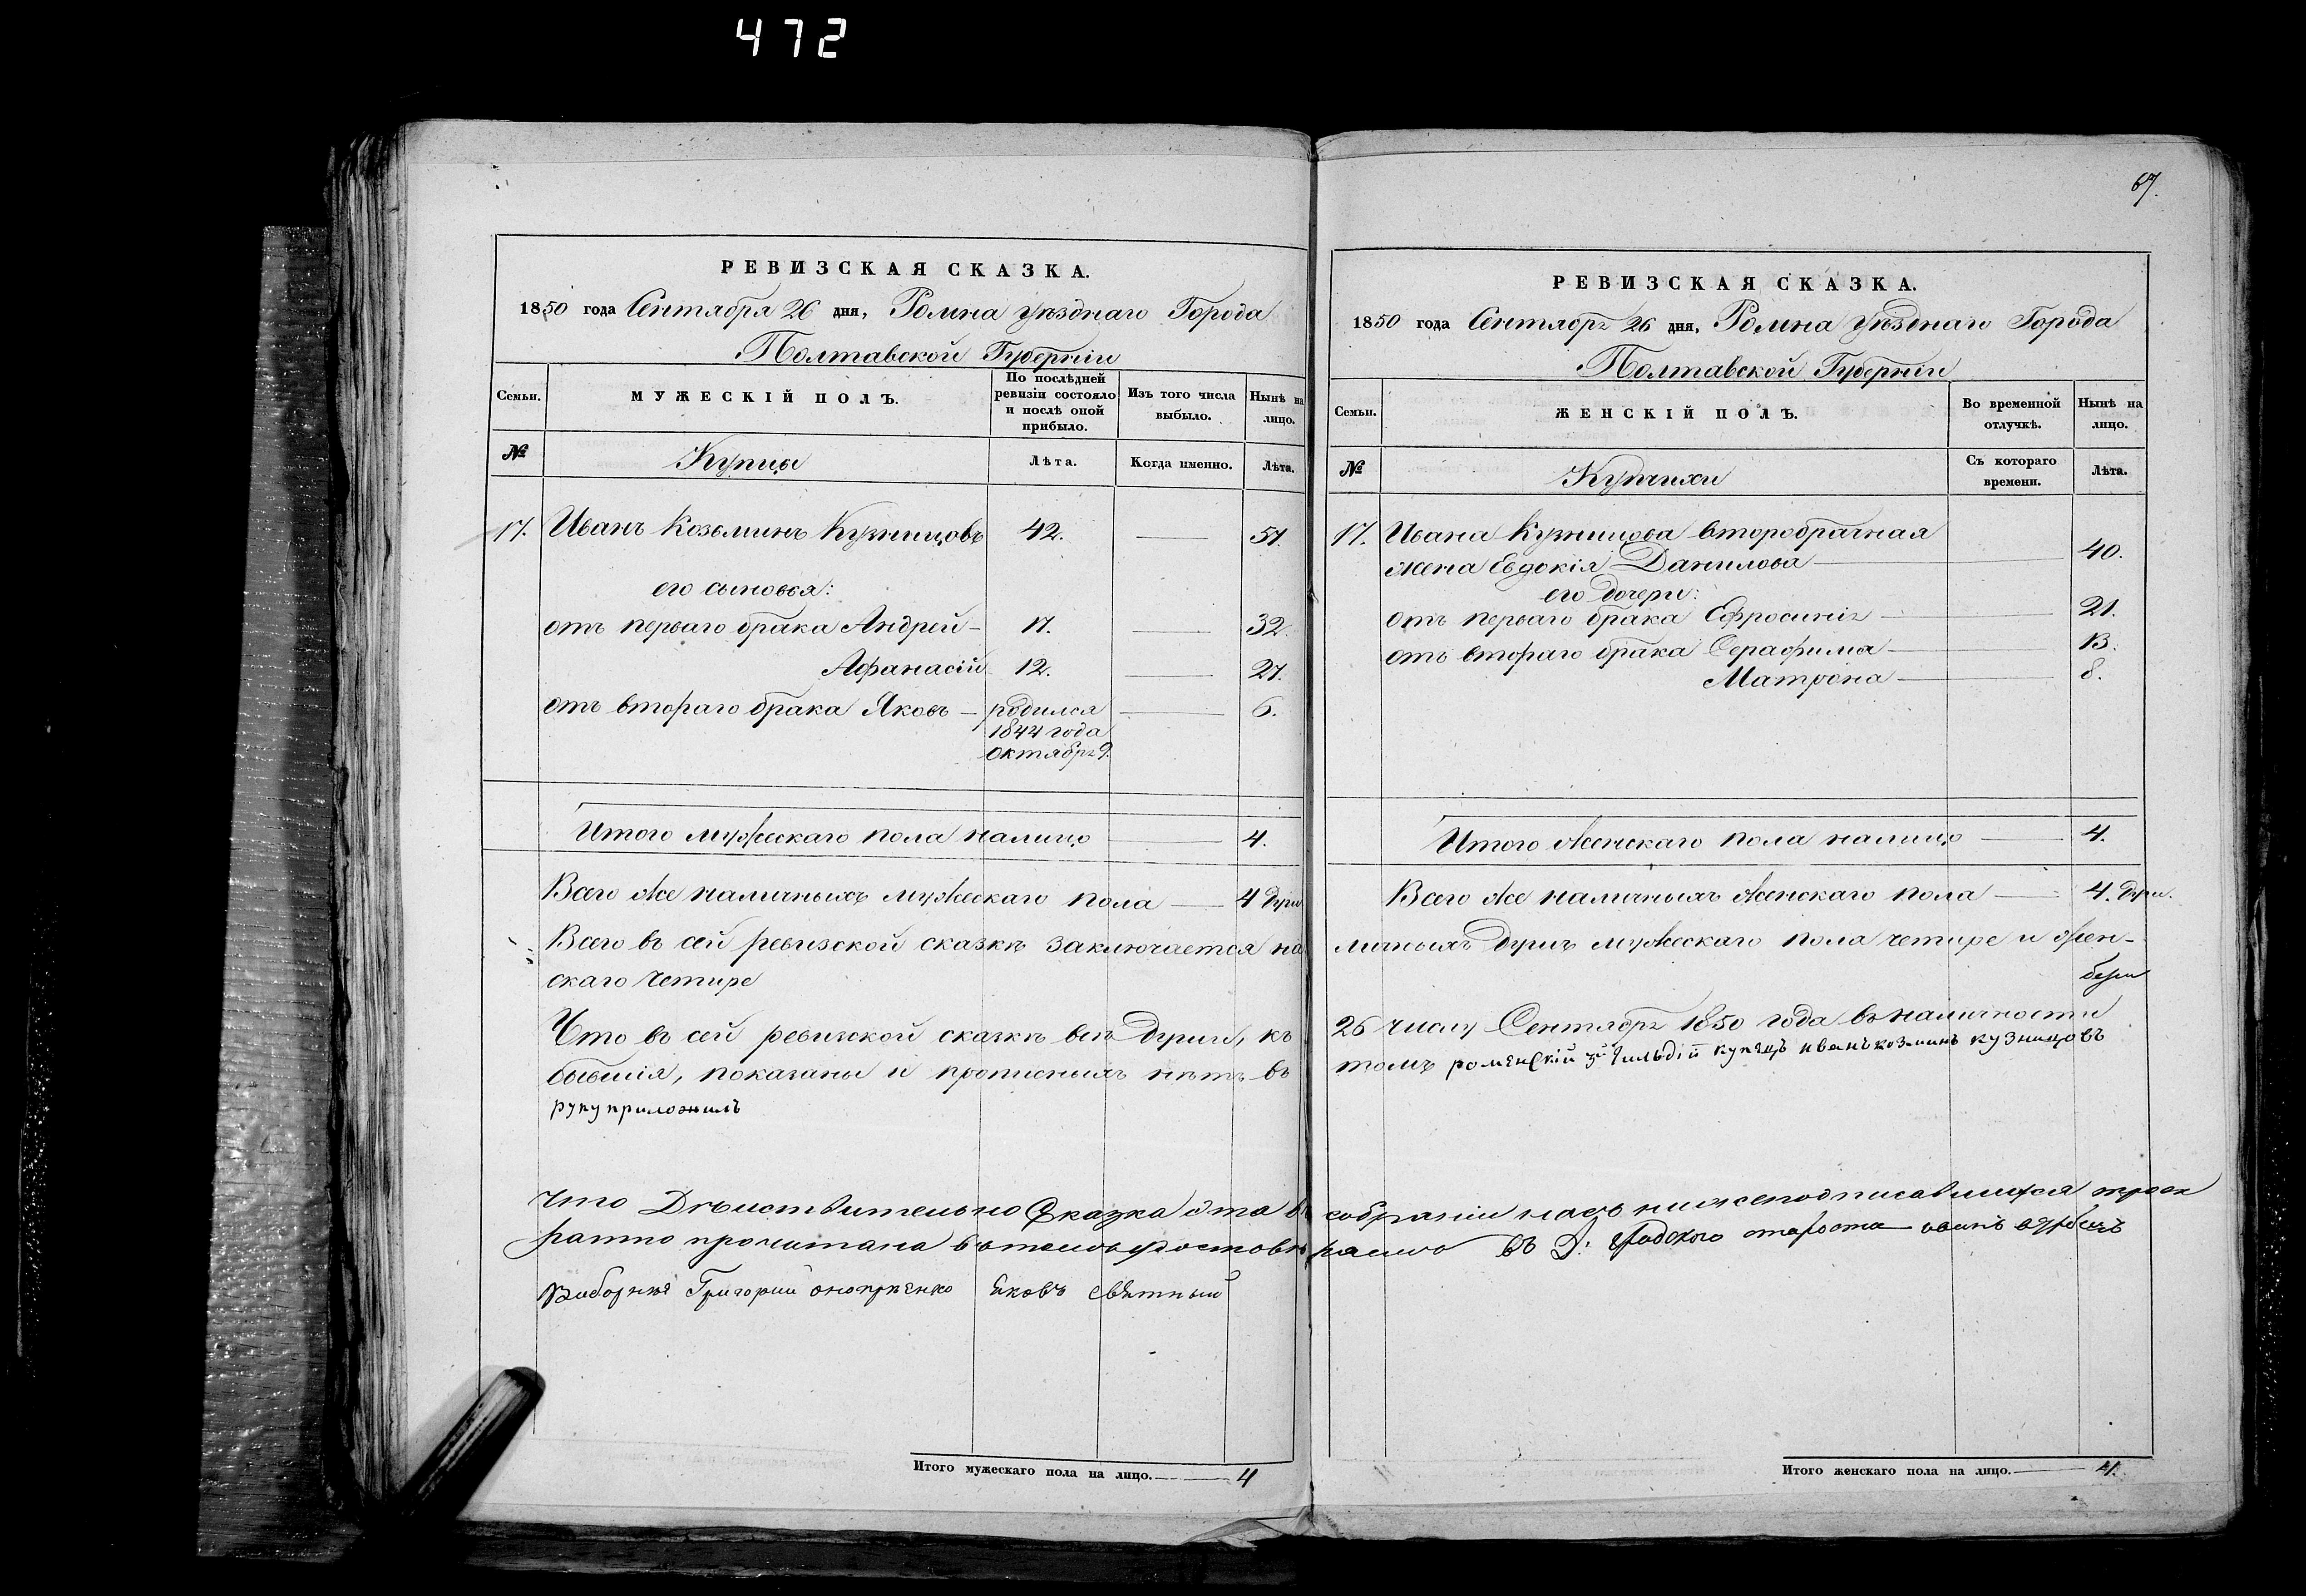 472
67.
РЕВИЗСКАЯ СКАЗКА.
1850 года Сентября 26 дня, Ромна уѣзднаго Города
Полтавской Губерніи
Семьи.
МУЖЕСКІЙ ПОЛЪ.
По послѣдней ревизіи состояло и послѣ оной прибыло.
Изъ того числа выбыло.
Нынѣ на лицо.
№
Купцы
Лѣта.
Когда именно.
Лѣта.
17. Иванъ Козьминъ Кузницовъ 42. 57.
его сыновья:
отъ перваго брака Андрей 17. 32.
Афанасій 12. 27.
отъ втораго брака Яковъ родился 6.
1844 года
октября 9.
Итого мужескаго пола налицо 4.
Всего же наличныхъ мужескаго пола 4 душ
Всего въ сей ревизской сказкѣ заключается на
скаго четыре
Что въ сей ревизской сказкѣ всѣ души, къ
бывшія, показаны и прописныхъ нѣтъ въ
руку приложилъ
Что Дѣиствительно Сказка эта въ
ратно прочитана вътомъ удостовѣ
Виборние Григории оноприенко Яковъ свѣтный
Итого мужескаго пола на лицо. 4
РЕВИЗСКАЯ СКАЗКА.
1850 года Сентября 26 дня, Ромна уѣзднаго Города
Полтавской Губерніи
Семьи.
ЖЕНСКІЙ ПОЛЪ.
Во временной отлучкѣ.
Нынѣ на лицо.
№
Купчихи
Съ котораго времени.
Лѣта.
17. Ивана Кузницова второбрачная
жена Евдокія Данилова 40.
его дочери:
отъ перваго брака Ефросинія 21.
отъ втораго брака Серафима 13.
Матрона 8.
Итого женскаго пола налицо 4.
Всего же наличныхъ женскаго пола 4. души.
личныхъ душъ мужескаго пола четыре и жен-
26 числу Сентября 1850 года въ наличности
томъ роменскій 3й гильдіи купецъ иванъ козминъ кузницовъ
собраніи насъ нижеподписавшихся троек
ряемъ Городского староста
Итого женскаго пола на лицо. 4.